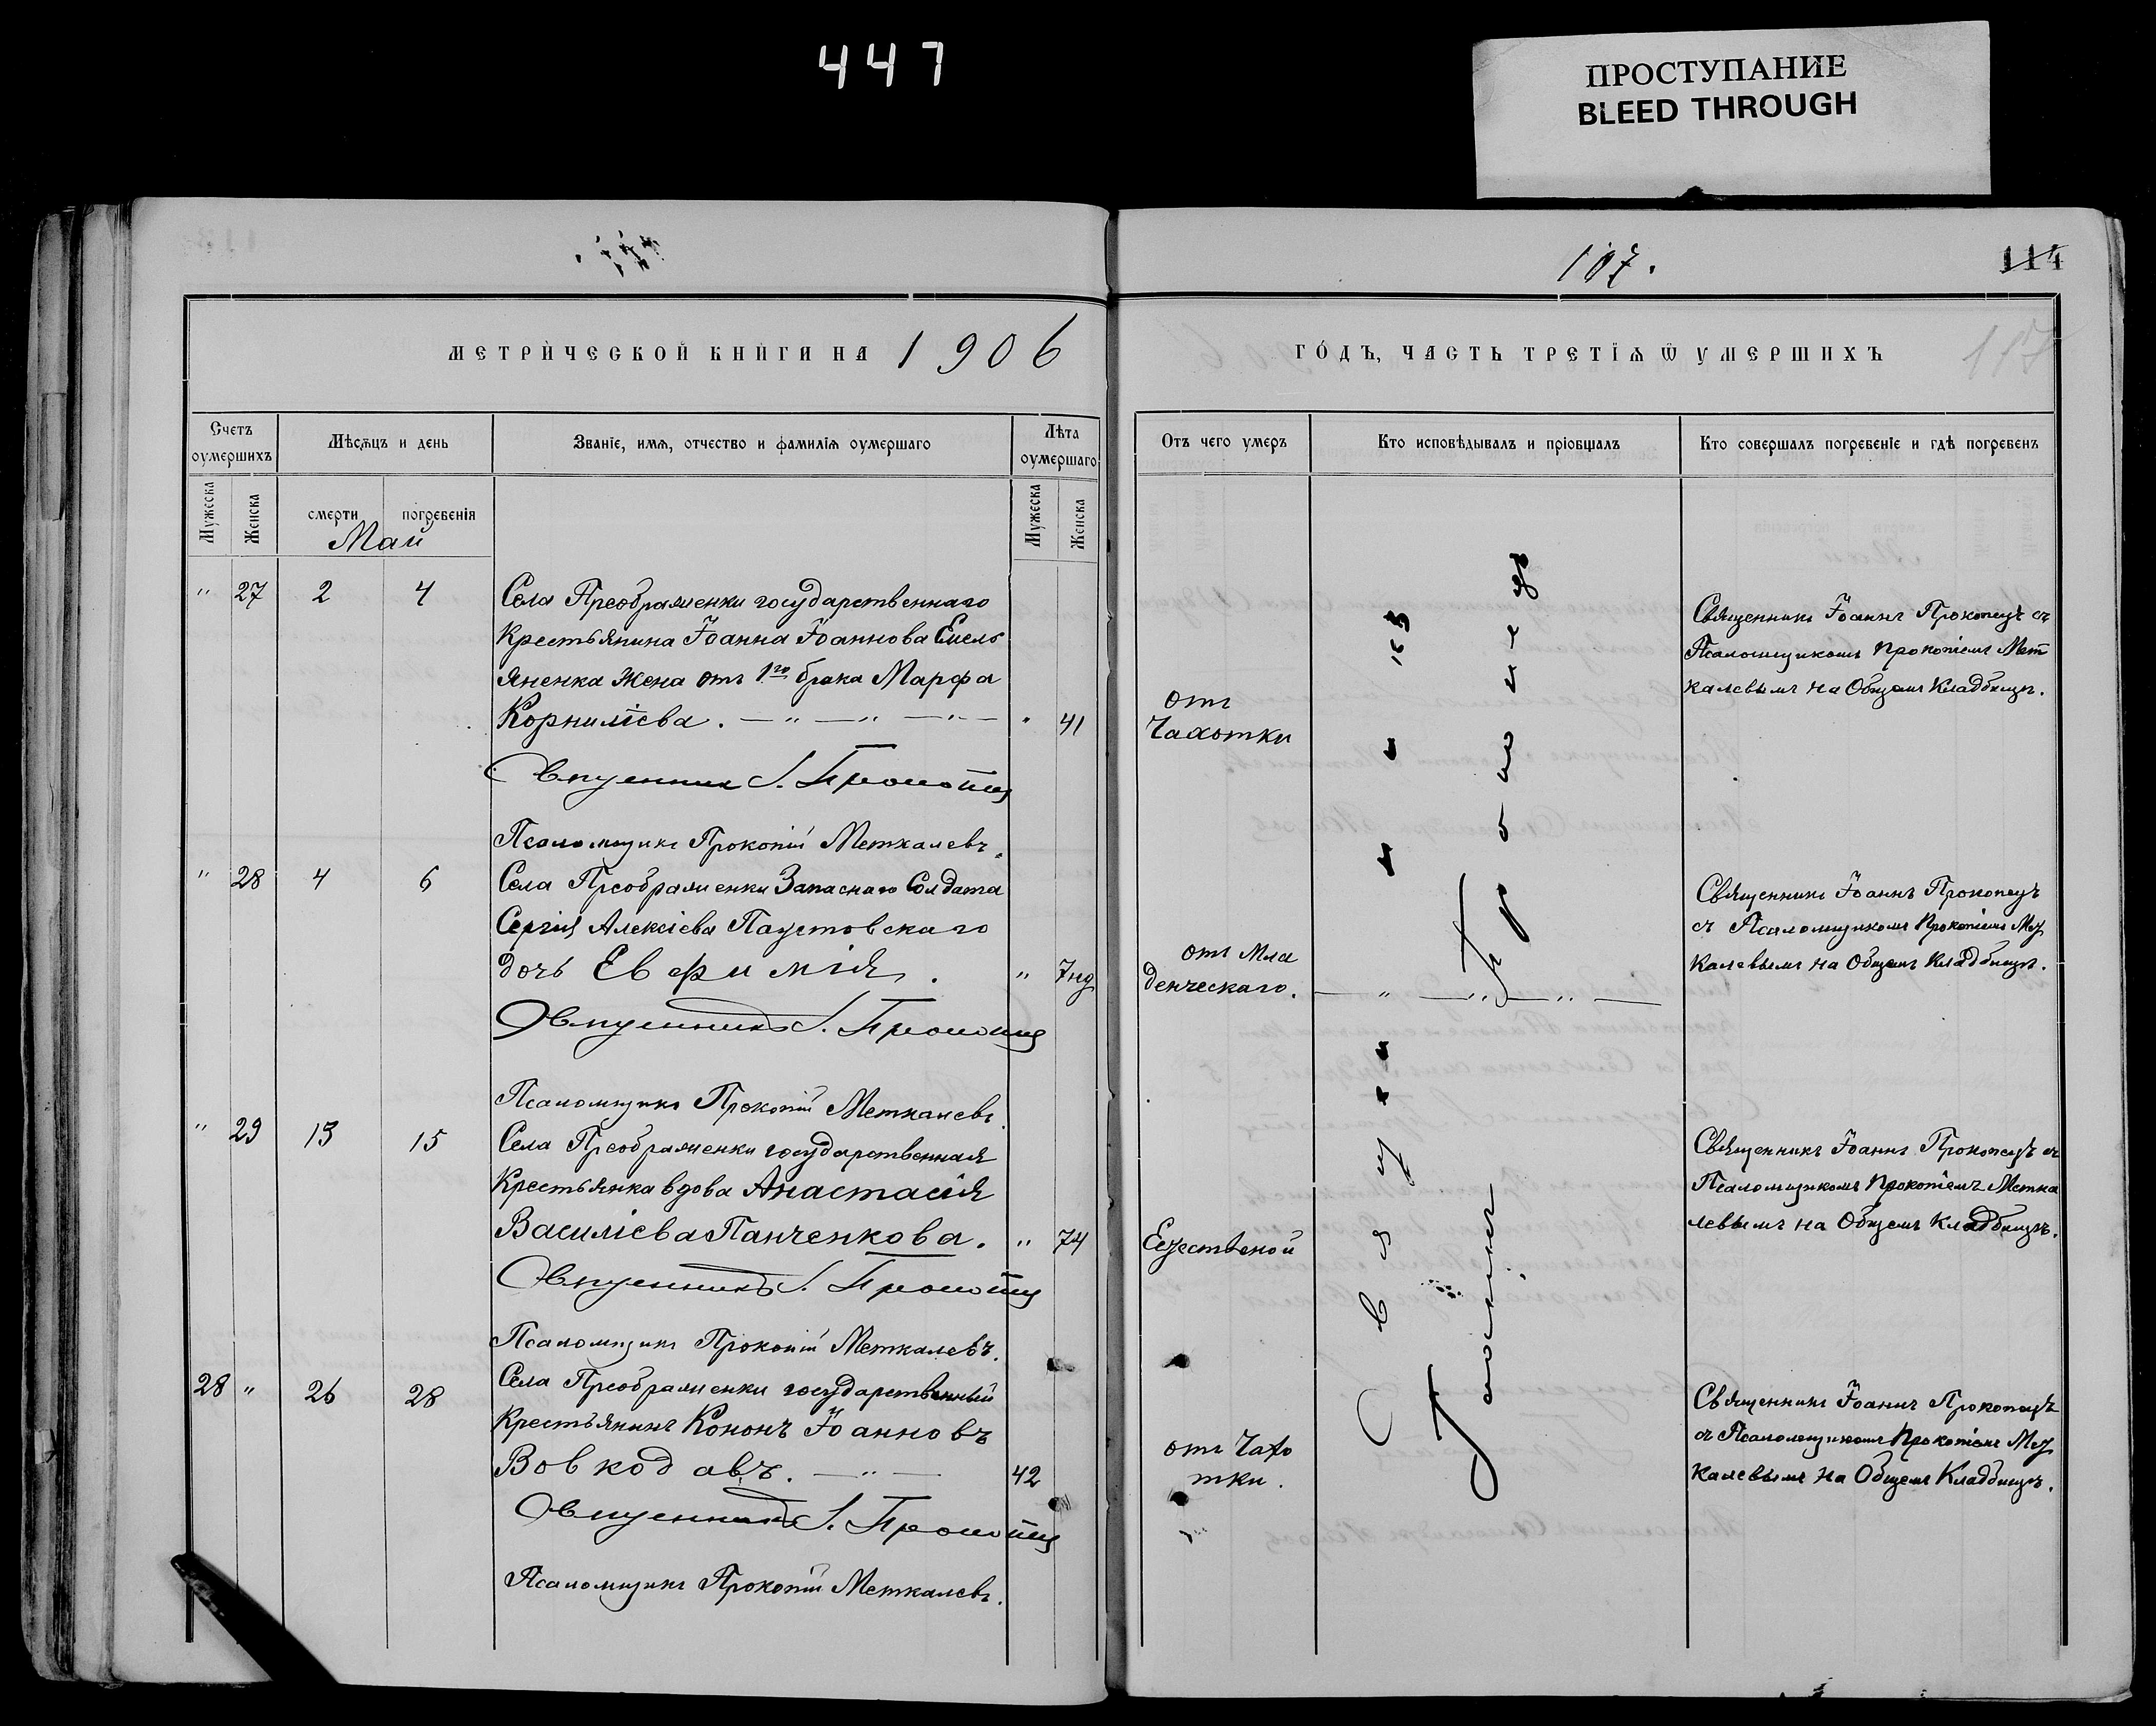 447
ПРОСТУПАНИЕ
BLEED THROUGH
117.
114
117
МЕТРИ́ЧЕСКОЙ КНИ́ГИ НА 1906
ГО́ДЪ, ЧАСТЬ ТРЕТІѦ Ѿ УМЕРШИХЪ
Счетъ оумершихъ
Мѣсѧцъ и день
Званіе, имѧ, отчество и фамиліѧ оумершаго
Лѣта оумершаго
Отъ чего умеръ
Кто исповѣдывалъ и пріобщалъ
Кто совершалъ погребеніе и гдѣ погребенъ
Мужеска
Женска
смерти
погребенія
Мужеска
Женска
Май
" 27 2 4
Села Преображенки государственнаго
Крестьянина Іоанна Іоаннова Емель
яненка жена отъ 1го брака Марфа
Корниліева. " 41
Священникъ І. Прокопецъ
Псаломщикъ Прокопій Меткалевъ.
отъ
Чахотки
Священникъ Іоаннъ Прокопецъ съ
Псаломщикомъ Прокопіемъ Мет
калевымъ на Общемъ Кладбищѣ.
" 28 4 6
Села Преображенки Запаснаго Солдата
Сергія Алексіева Паустовскаго
дочь Евфимія. " 7нд
Священникъ І. Прокопецъ
Псаломщикъ Прокопій Меткалевъ
отъ Мла
денческаго.
Священникъ Іоаннъ Прокопецъ
съ Псаломщикомъ Прокопіемъ Мет
калевымъ на Общемъ Кладбищѣ.
" 29 13 15
Села Преображенки государственная
Крестьянка вдова Анастасія
Василіева Панченкова. " 74
Священникъ І. Прокопецъ
Псаломщикъ Прокопій Меткалевъ.
Естественой
Священникъ Іоаннъ Прокопецъ съ
Псаломщикомъ Прокопіемъ Метка
левымъ на Общемъ Кладбищѣ.
28 " 26 28
Села Преображенки государственный
Крестьянинъ Кононъ Іоанновъ
Вовкодавъ. 42
Священникъ І. Прокопецъ
Псаломщикъ Прокопій Меткалевъ.
отъ Чахо
тки.
Священникъ Іоаннъ Прокопецъ
съ Псаломщикомъ Прокопіемъ Мет
калевымъ на Общемъ Кладбищѣ.
Священникъ
Іоаннъ Прокопецъ